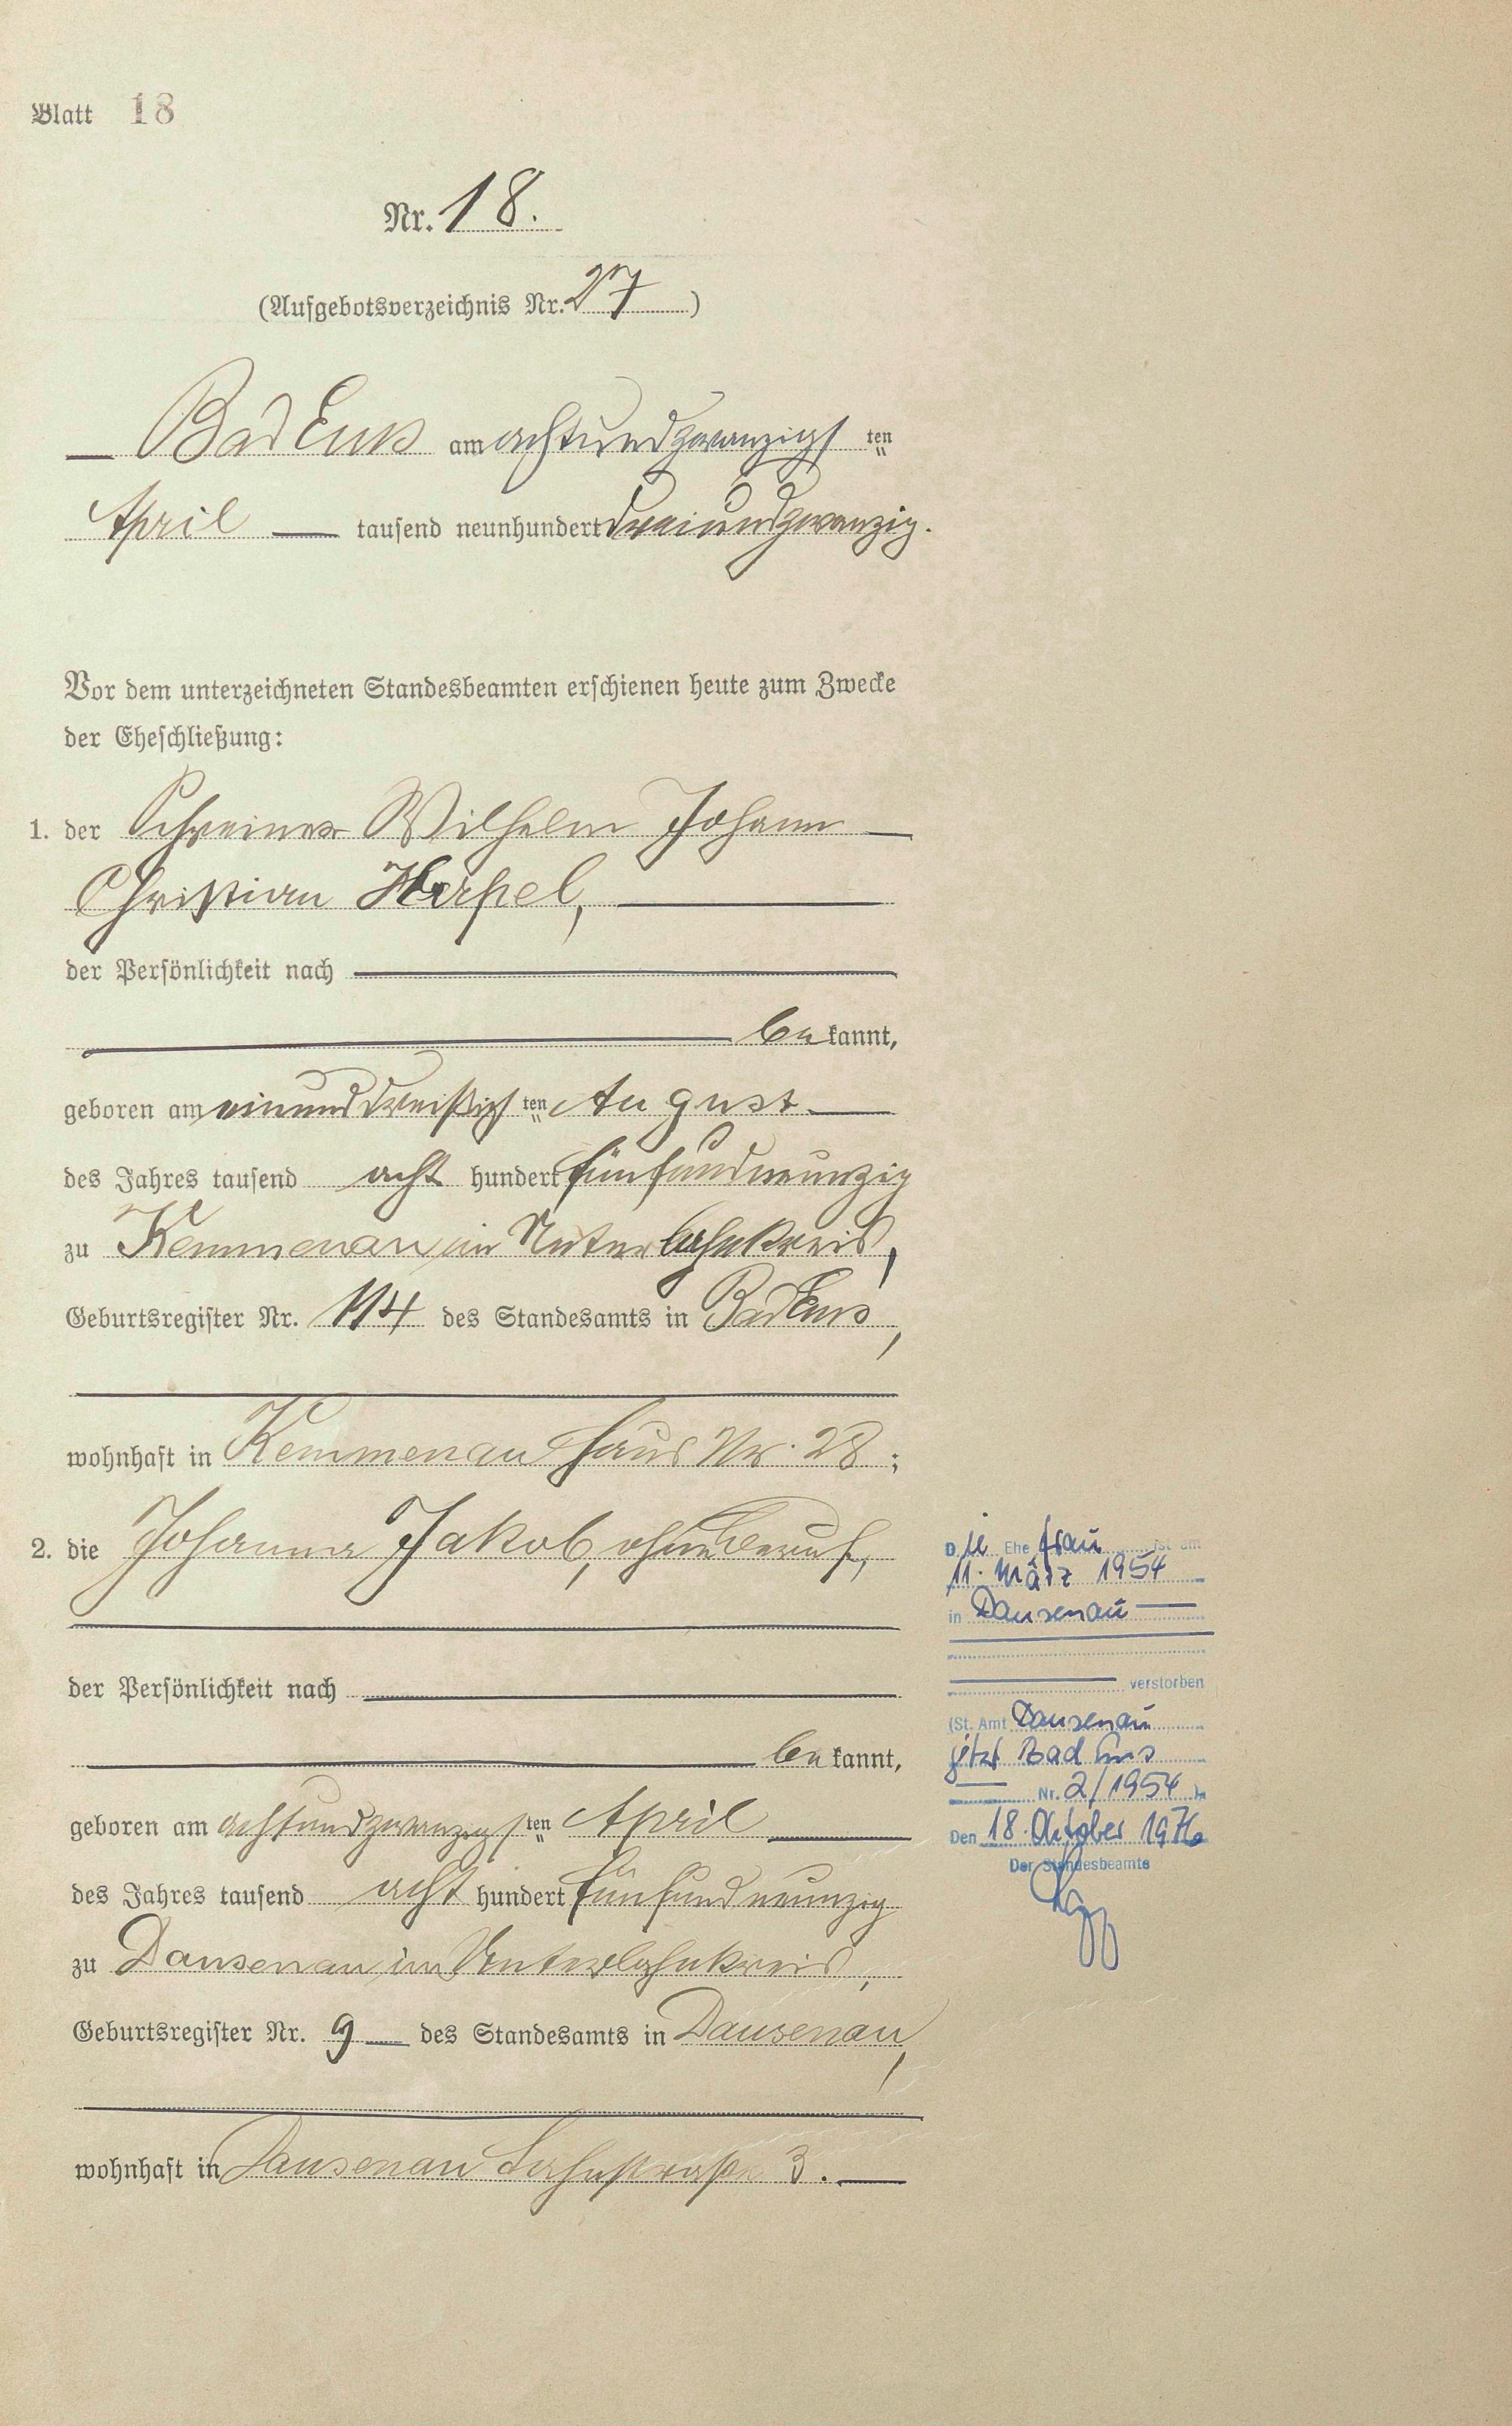 Blatt 18
Nr. 18.
(Aufgebotsverzeichnis Nr. 27)
Bad Ems am achtundzwanzigsten
April tausend neunhundert dreiundzwanzig.
Vor dem unterzeichneten Standesbeamten erschienen heute zum Zwecke
der Eheschließung:
1. der Schreiner Wilhelm Johann
Christian Harpel,
der Persönlichkeit nach
bekannt,
geboren am einunddreißigsten August
des Jahres tausend acht hundert fünfundneunzig
zu Kemmenau im Unterlahnkreis,
Geburtsregister Nr. 114 des Standesamts in Bad Ems,
wohnhaft in Kemmenau Haus Nr. 28;
2. die Johanna Jakob, ohne Beruf,
der Persönlichkeit nach
bekannt,
geboren am achtundzwanzigsten April
des Jahres tausend acht hundert fünfundneunzig
zu Dausenau im Unterlahnkreis,
Geburtsregister Nr. 9 des Standesamts in Dausenau,
wohnhaft in Dausenau Lahnstraße 3.
Die Ehefrau ist am
11. März 1954
in Dausenau
verstorben
(St. Amt Dausenau
jetzt Bad Ems
Nr. 2/1954)
Den 18. Oktober 1976
Der Standesbeamte